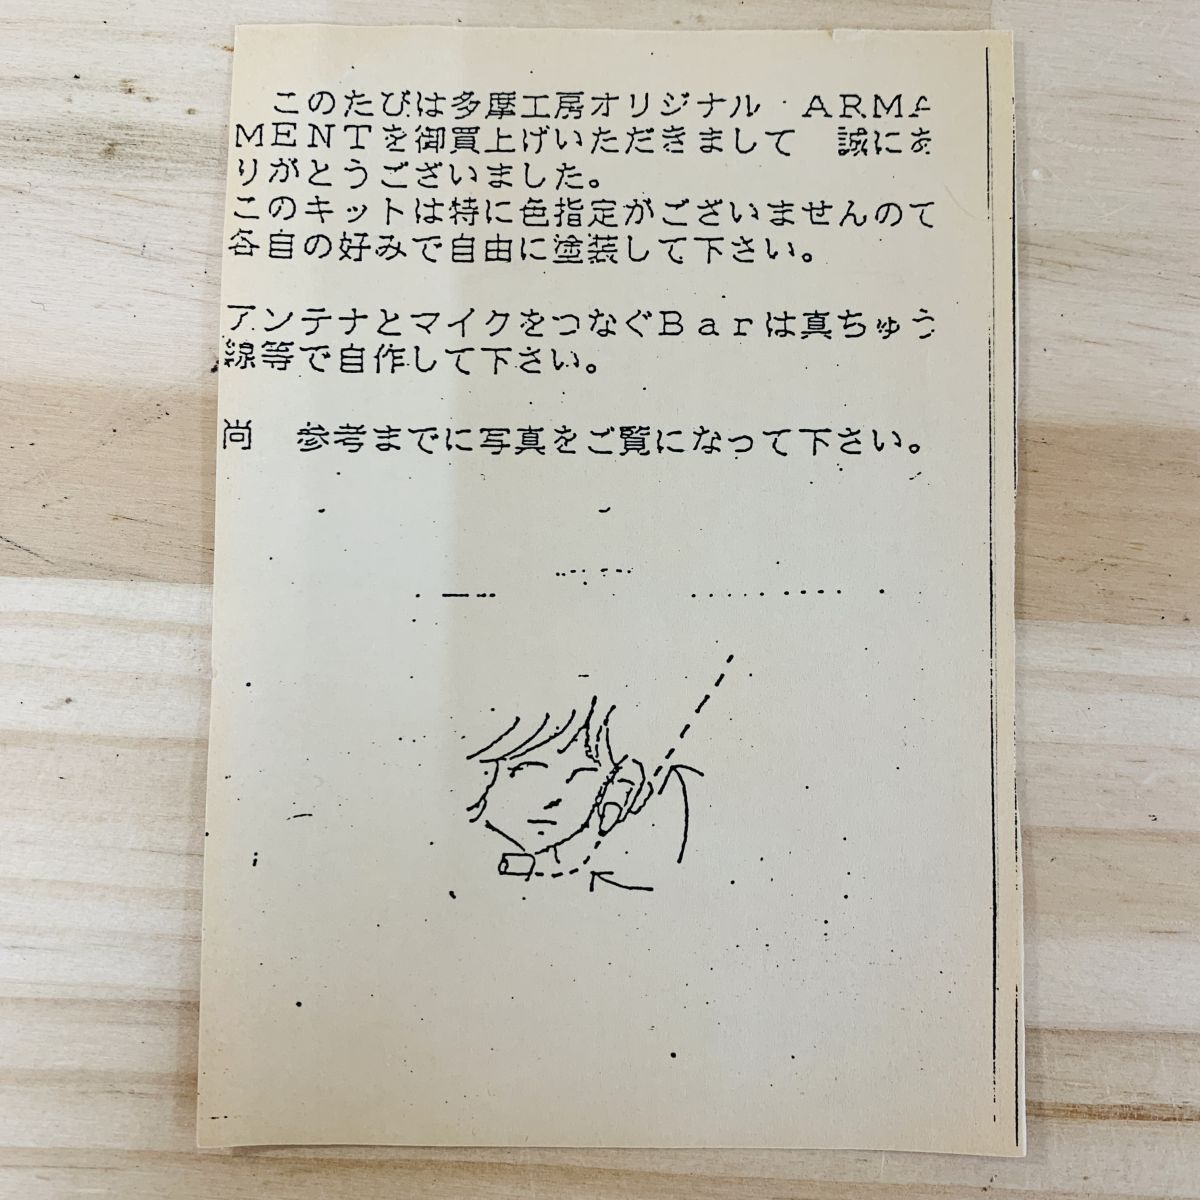 このたびは多摩工房オリジナル ARMA
MENTを御買上げいただきまして 誠にあ
りがとうございました。
このキットは特に色指定がございませんので
各自の好みで自由に塗装して下さい。
アンテナとマイクをつなぐBarは真ちゅう
線等で自作して下さい。
尚 参考までに写真をご覧になって下さい。